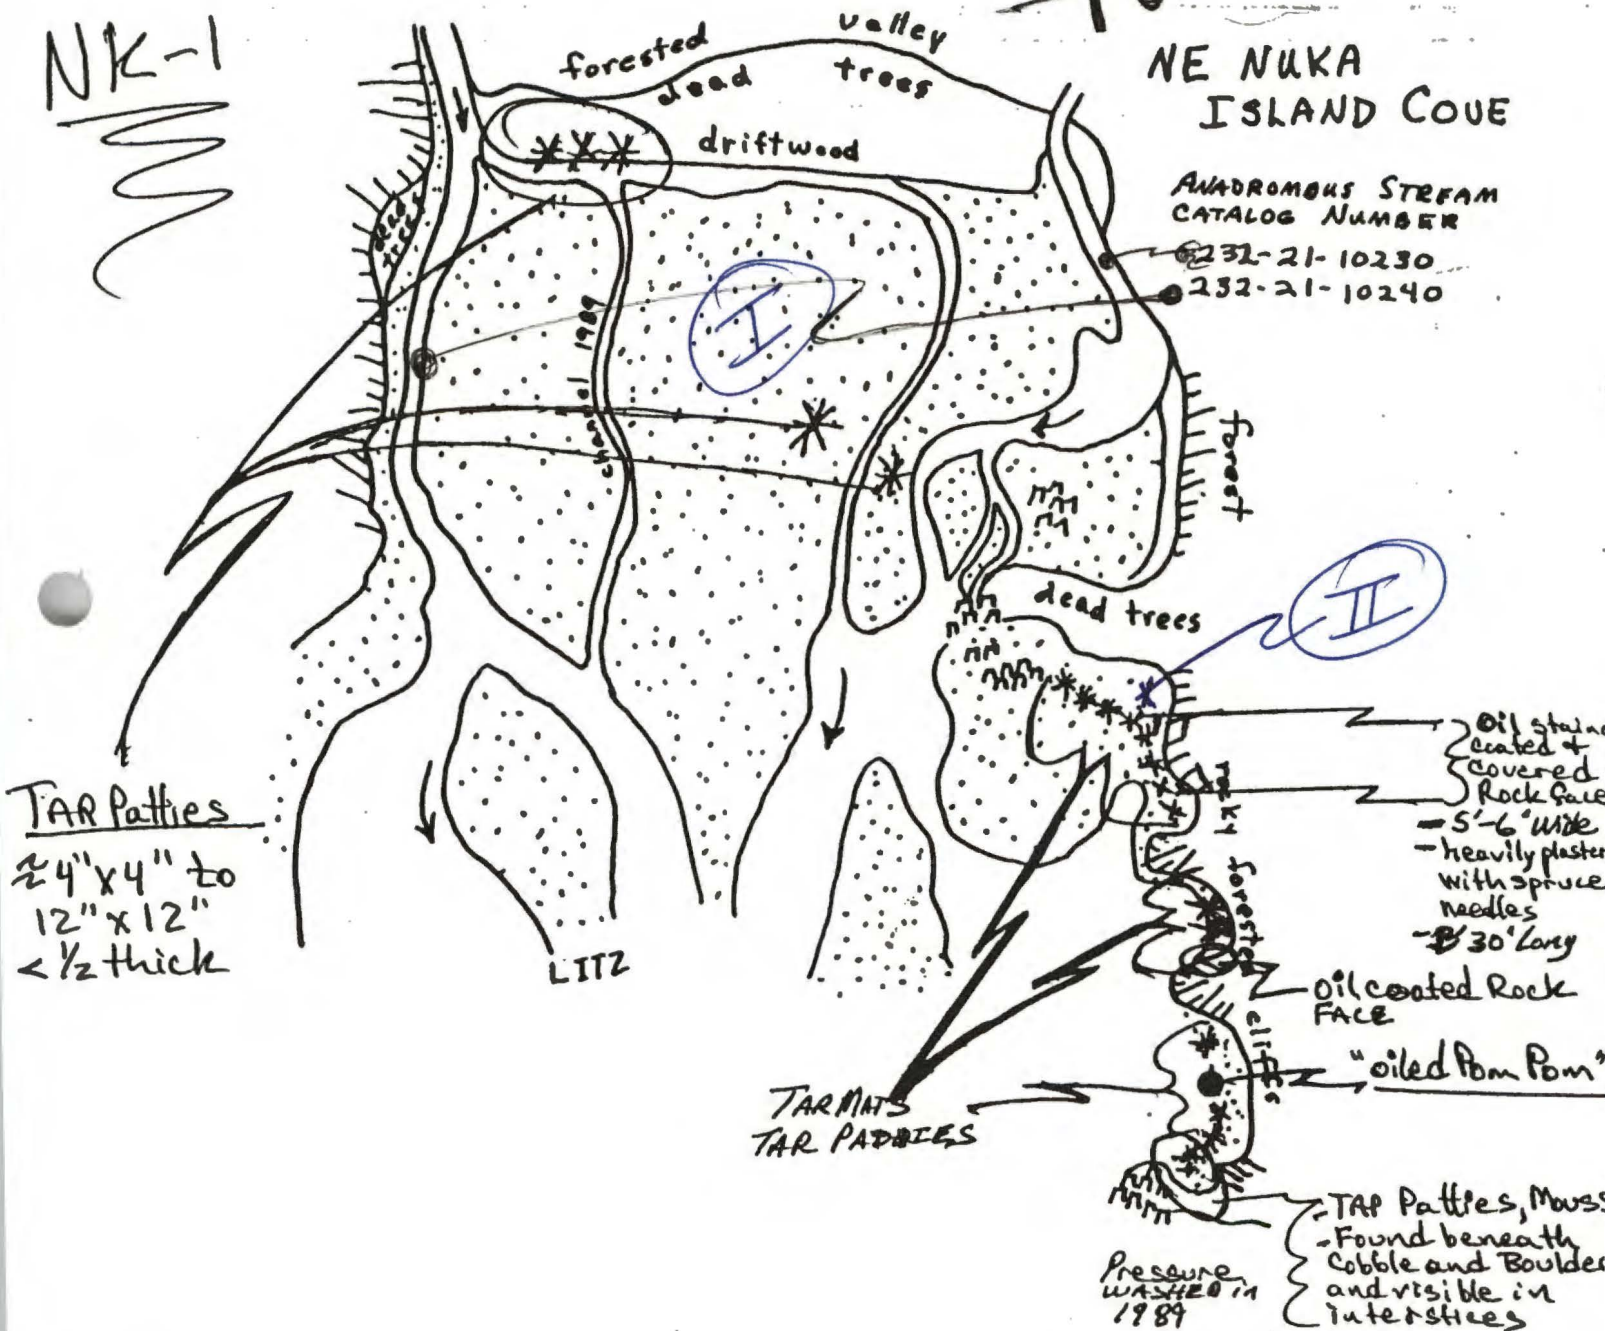 NK-1
forested valley
dead trees
driftwood
NE NUKA
ISLAND COVE
ANADROMOUS STREAM
CATALOG NUMBER
232-21-10230
232-21-10240
dead
trees
channel 1989
I
forest
dead trees
II
TAR Patties
≈ 4"x4" to
12"x12"
< 1/2 thick
LITZ
rocky forested cliffs
Oil stain
coated +
covered
Rock face
- 5'-6' wide
- heavily plaster
with spruce
needles
- 30' Long
Oil coated Rock
FACE
"oiled Pom Pom"
TAR MATS
TAR PADDIES
Pressure
WASHED in
1989
- TAR Patties, Mouss
- Found beneath
Cobble and Boulder
and visible in
interstices